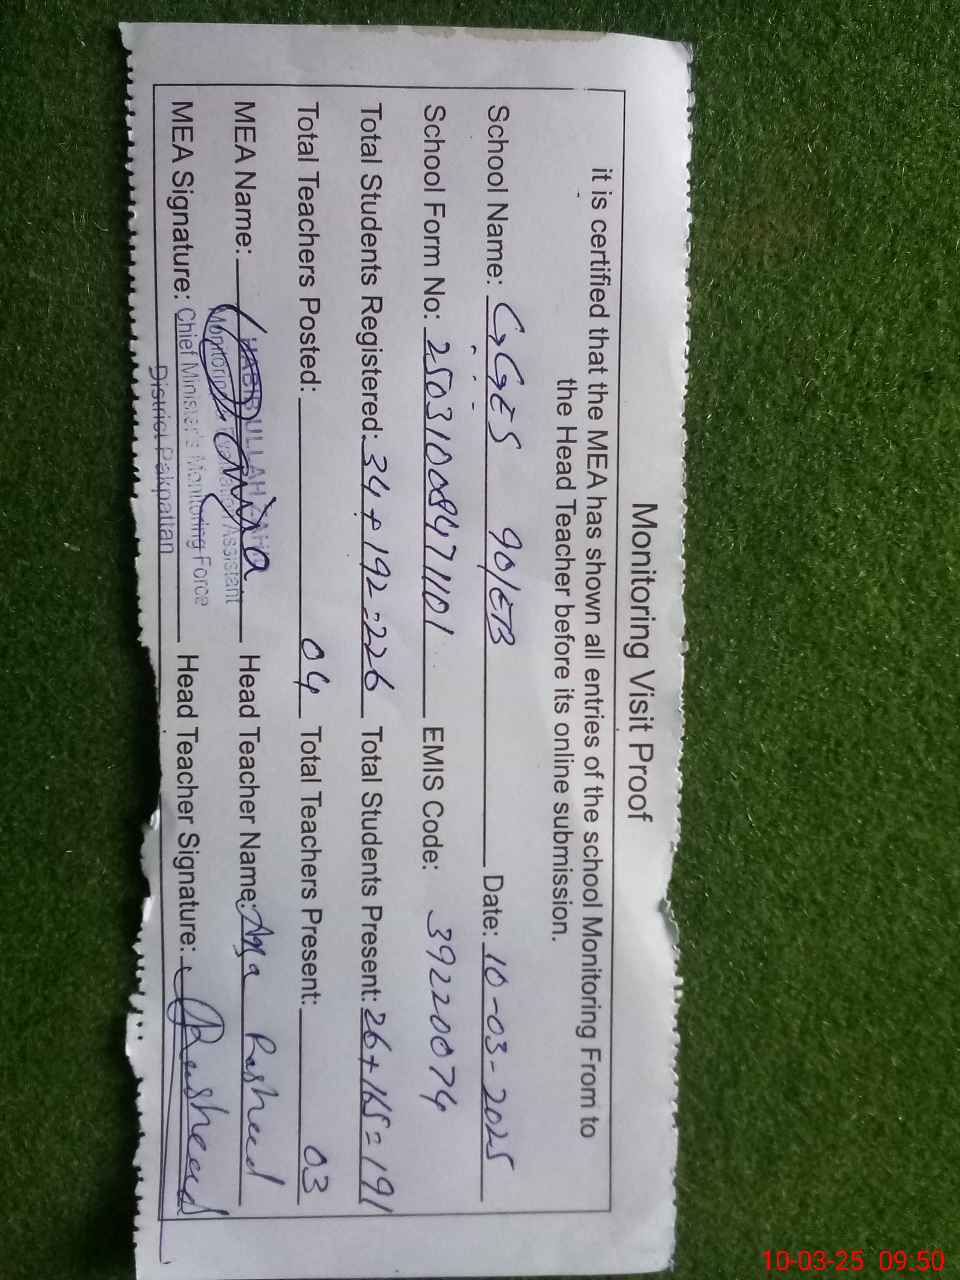 Monitoring Visit Proof
it is certified that the MEA has shown all entries of the school Monitoring From to
the Head Teacher before its online submission.
School Name: GGES 90/EB Date: 10-03-2025
School Form No: 25031008471101 EMIS Code: 39220074
Total Students Registered: 34+192=226 Total Students Present: 26+165=191
Total Teachers Posted: 04 Total Teachers Present: 03
MEA Name: Head Teacher Name: Rasheed
Monitoring Assistant
MEA Signature: Chief Minister's Monitoring Force Head Teacher Signature: Rasheed
District Pakpattan
10-03-25 09:50